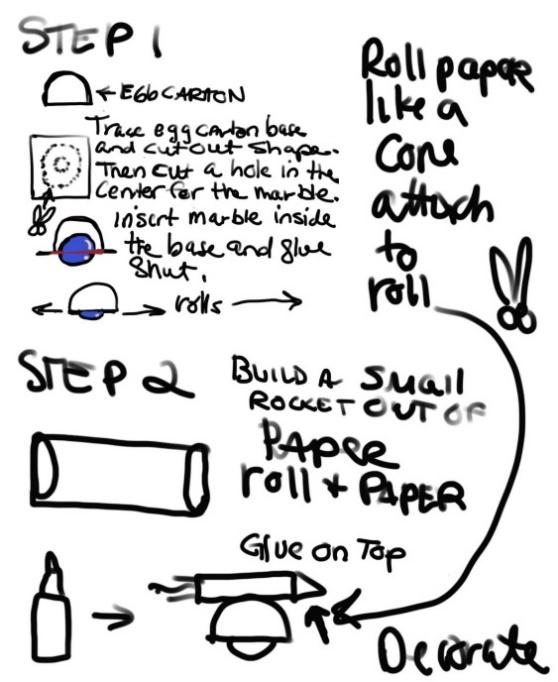 STEP 1
← EGG CARTON
Trace egg carton base
and cut out shape.
Then cut a hole in the
center for the marble.
Insert marble inside
the base and glue
shut.
← → rolls →
Roll paper
like a
cone
attach
to
roll
STEP 2
BUILD A Small
ROCKET OUT OF
PAPER
roll + PAPER
Glue on Top
Decorate